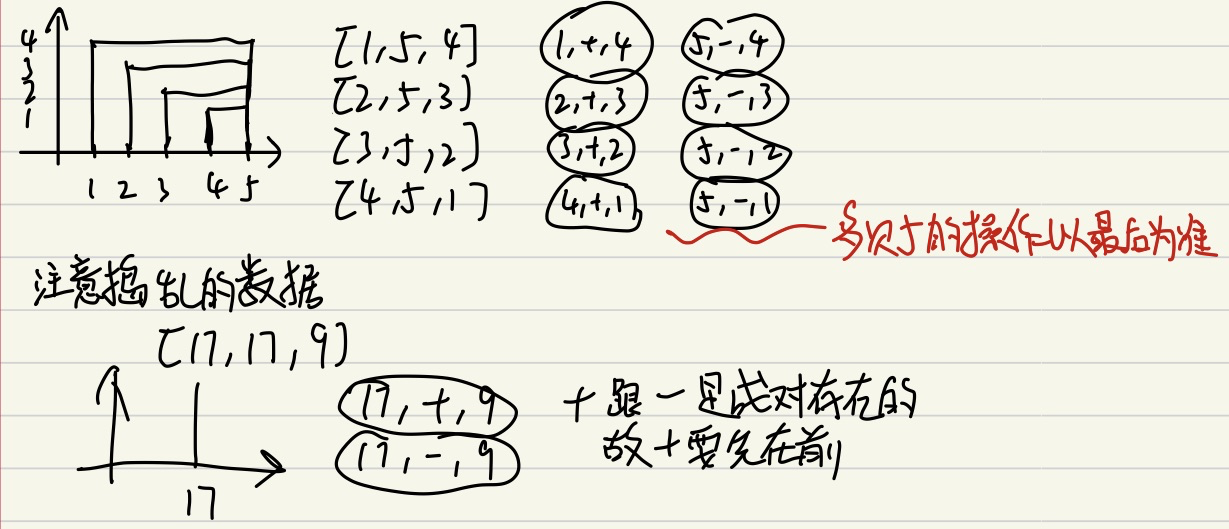 4
3
2
1
1 2 3 4 5
[1,5,4] 1,+,4 5,-,4
[2,5,3] 2,+,3 5,-,3
[3,5,2] 3,+,2 5,-,2
[4,5,1] 4,+,1 5,-,1
多次5的操作以最后为准
注意捣乱的数据
[17,17,9]
17
17,+,9
17,-,9
+跟-是成对存在的
故+要先在前